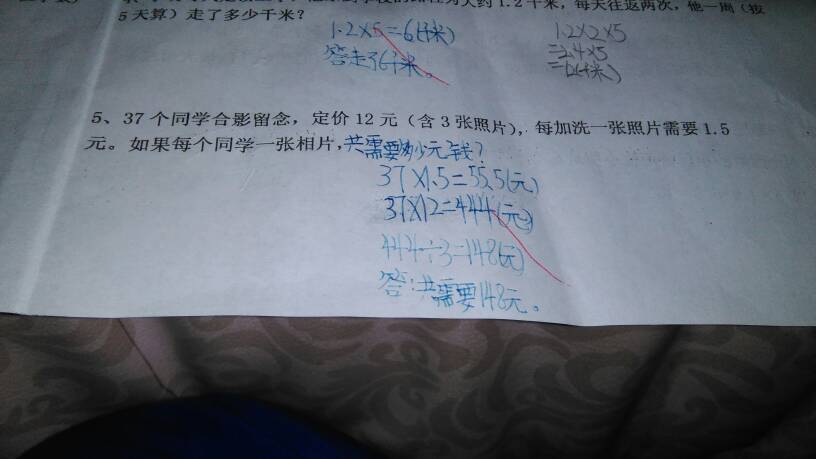 大约1.2千米，每天往返两次，他一周（按
5天算）走了多少千米？
1.2×5=6(千米)
答走了6千米。
1.2×2×5
=2.4×5
=12(千米)
5、37个同学合影留念，定价12元（含3张照片），每加洗一张照片需要1.5
元。如果每个同学一张相片，共需要多少元钱？
37×1.5=55.5(元)
37×12=444(元)
444÷3=148(元)
答：共需要148元。